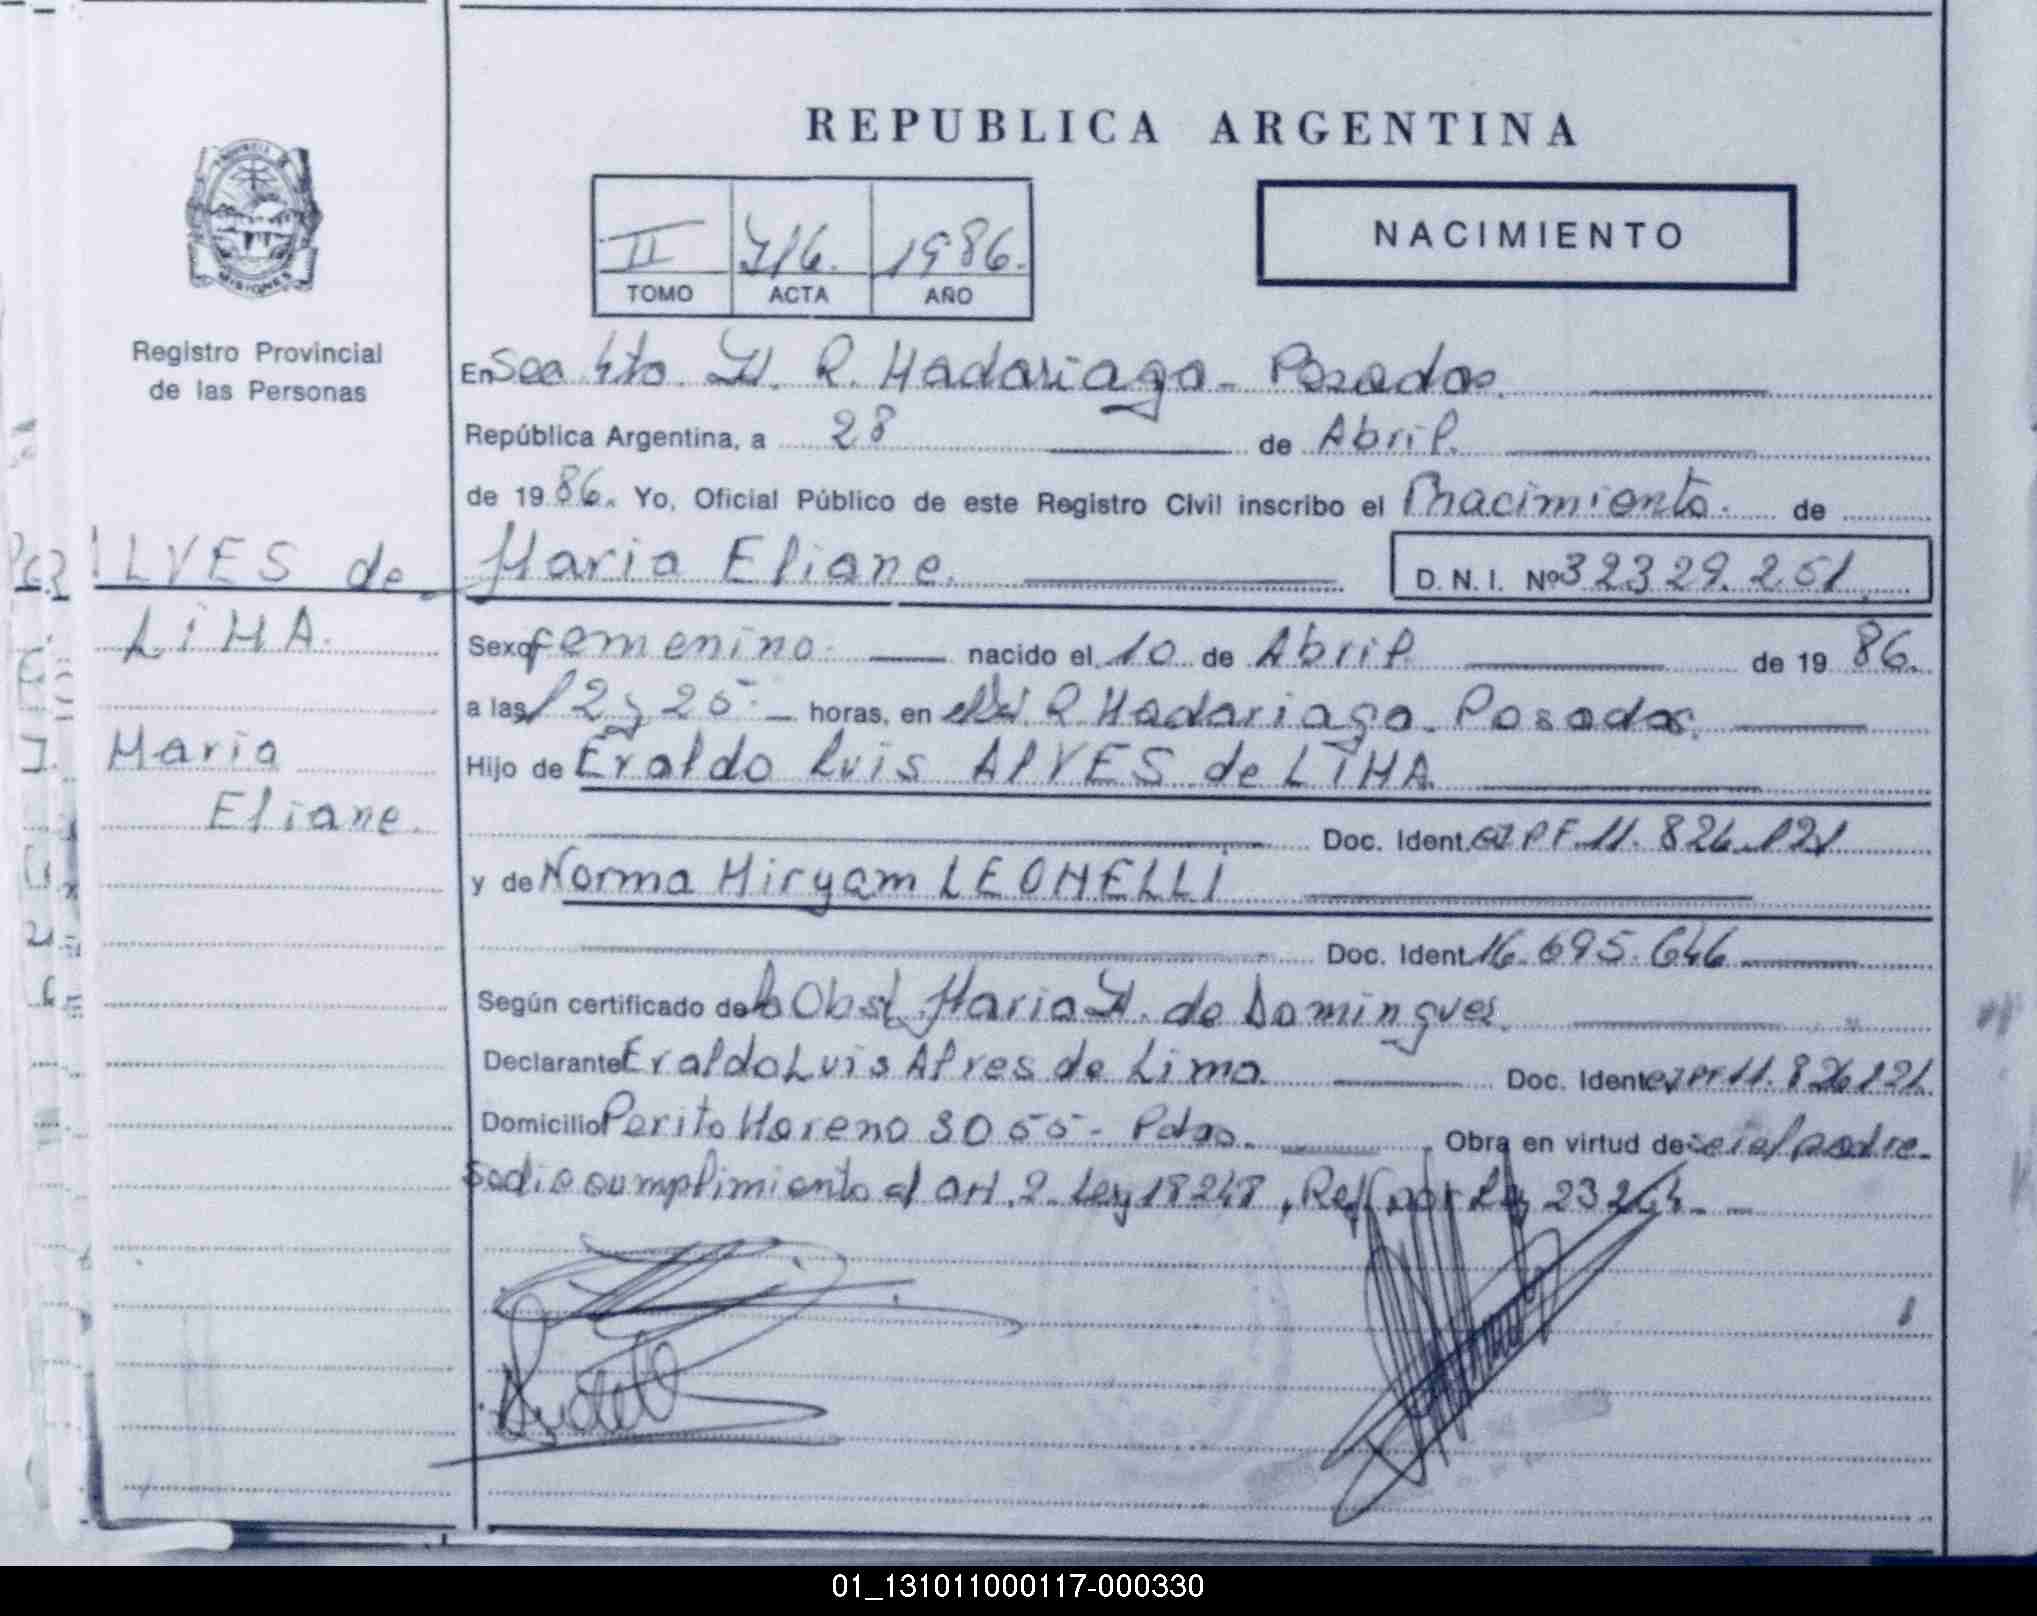 PROVINCIA DE
MISIONES
Registro Provincial
de las Personas
REPUBLICA ARGENTINA
II 716. 1986.
TOMO ACTA AÑO
NACIMIENTO
En Sec 4to. R. Madariaga - Posadas.
República Argentina, a 28 de Abril.
de 1986. Yo, Oficial Público de este Registro Civil inscribo el Nacimiento. de
ALVES de
LiMA.
Maria
Eliane.
Maria Eliane. D. N. I. Nº 32329.251
Sexo femenino. nacido el 10 de Abril de 19 86.
a las 12 y 25. horas, en R. Madariaga - Posadas.
Hijo de Eraldo Luis AlVES de LiMA.
Doc. Ident. CI PF. 11.826.121
y de Norma Miryam LEONELLi
Doc. Ident. 16.695.646
Según certificado de la Obst. Maria de Dominguez.
Declarante Eraldo Luis Alves de Lima. Doc. Ident. CI PF 11.826.121.
Domicilio Perito Moreno 3055 - Pdas. Obra en virtud de ser el padre.
Se dio cumplimiento al art. 2. Ley 18248, Ref por Ley 23264.
01_131011000117-000330